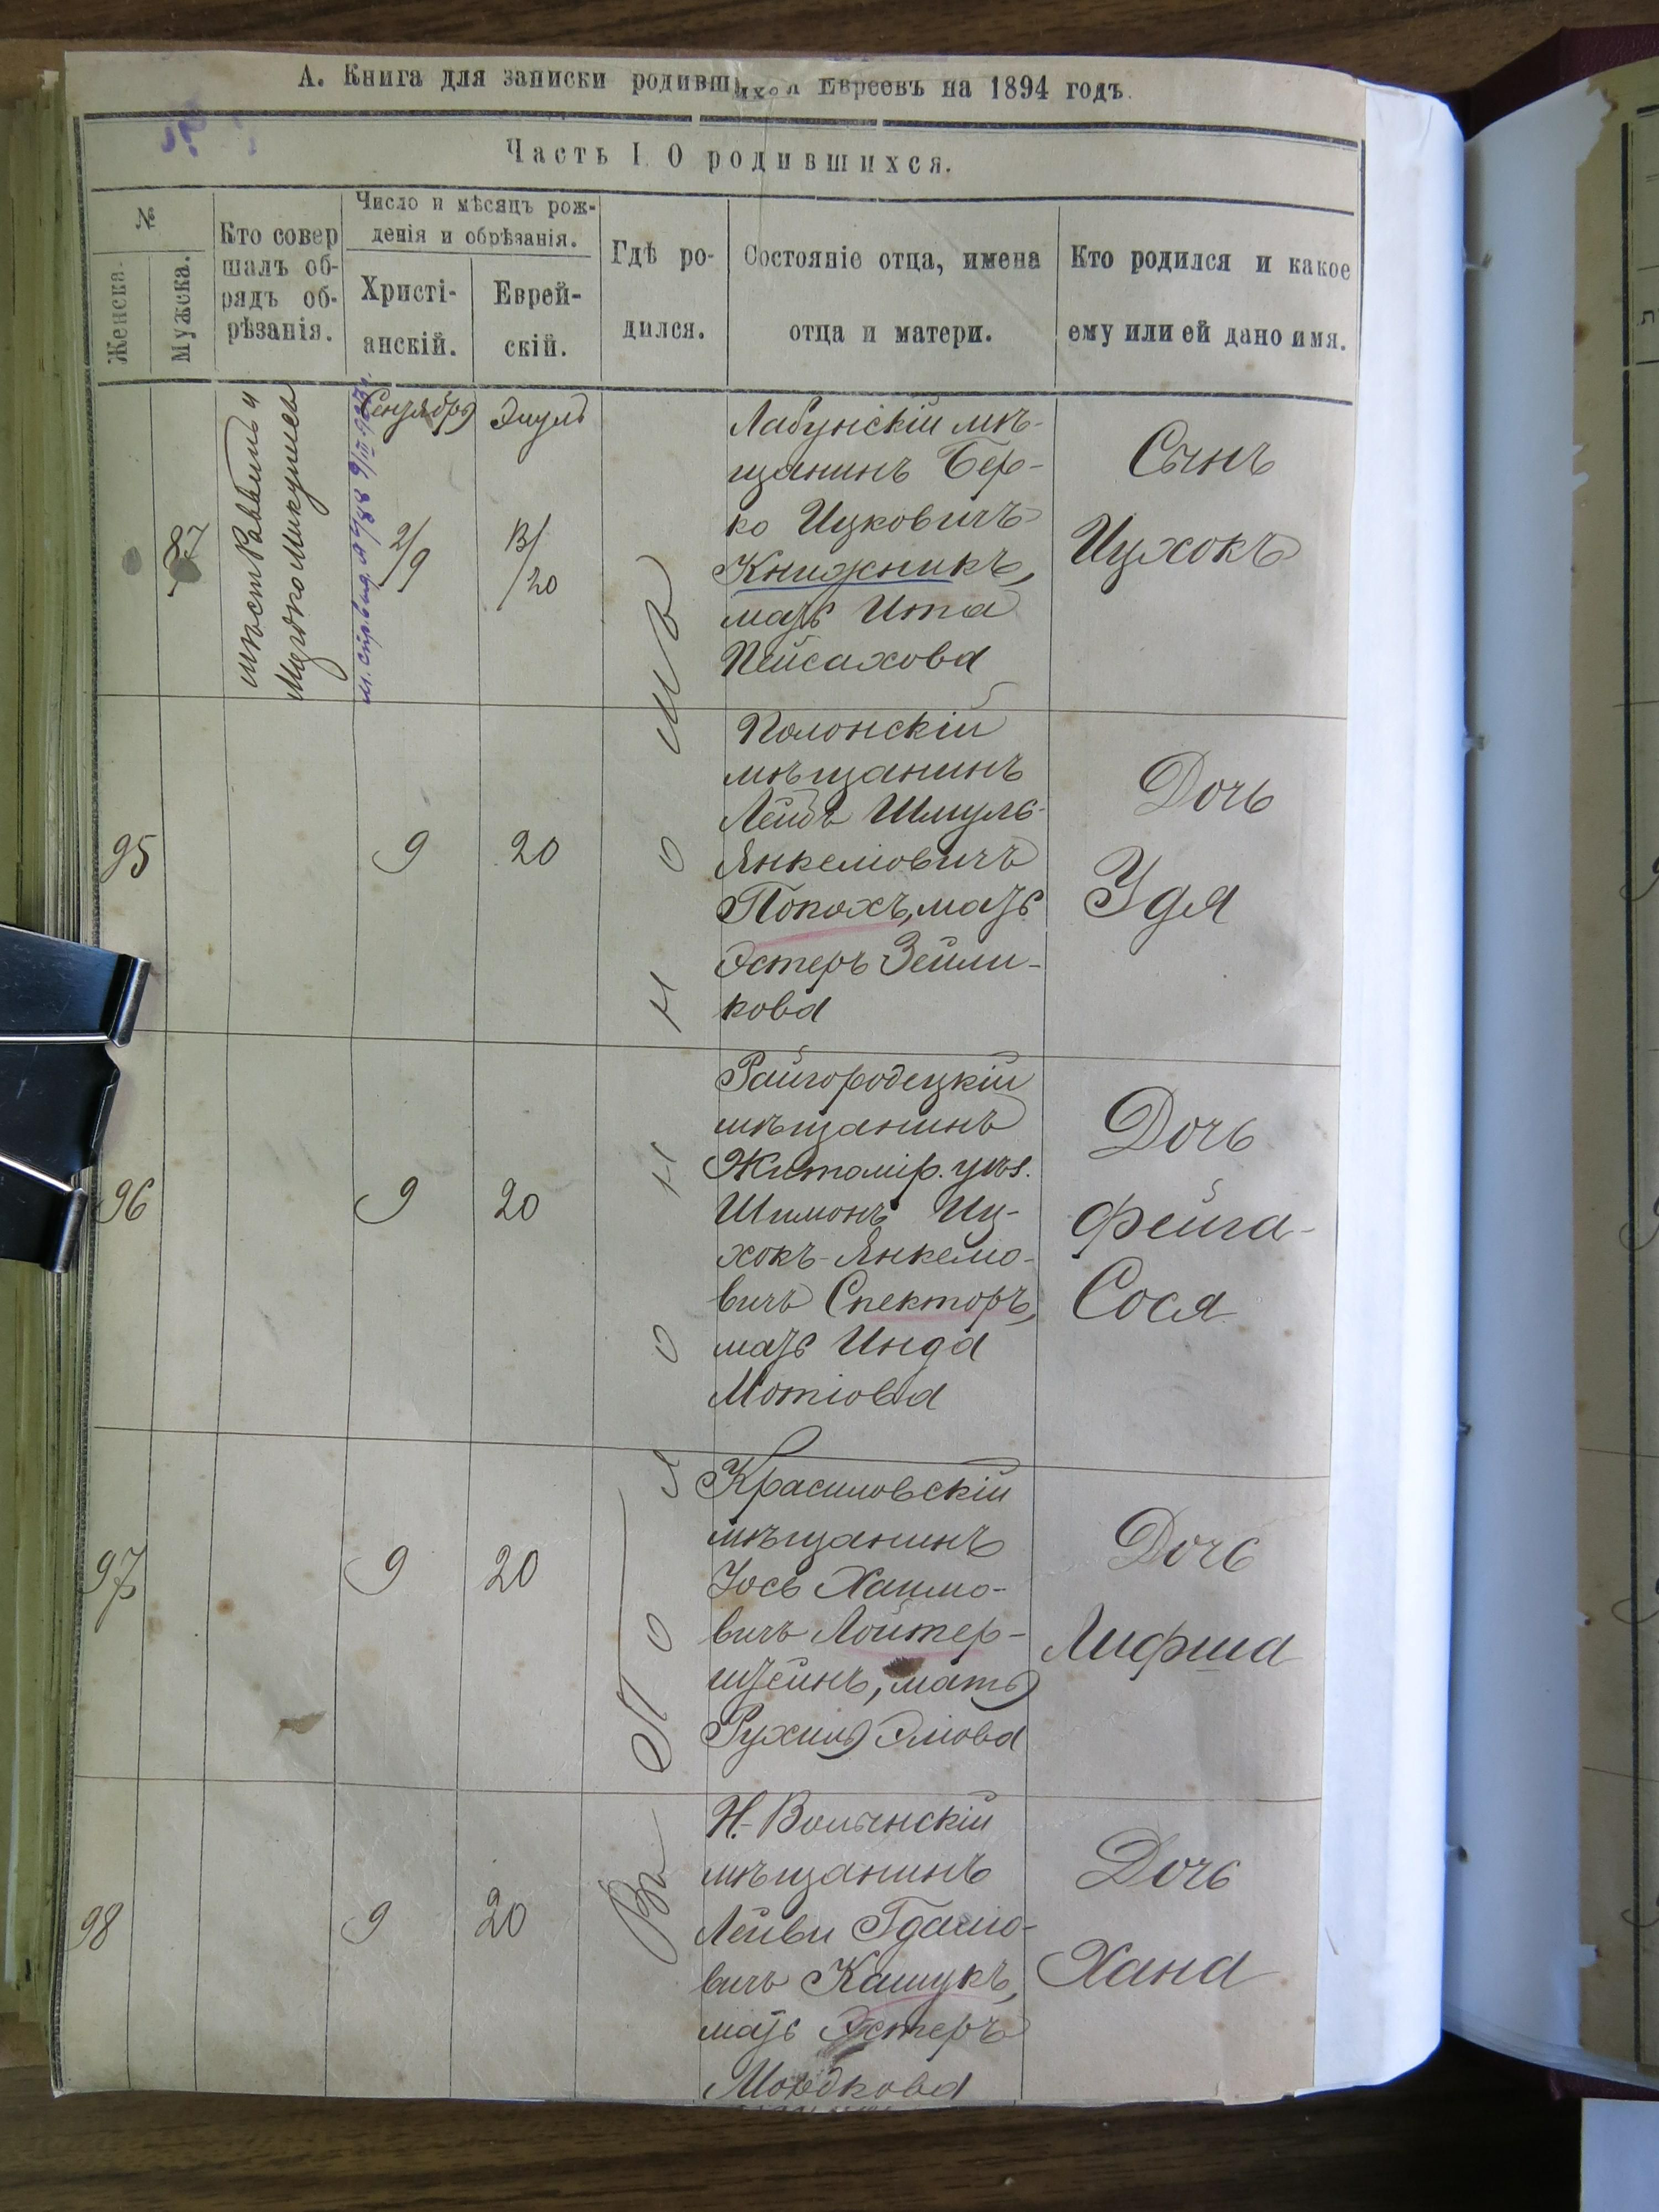 А. Книга для записки родившихся Евреевъ на 1894 годъ.
Часть I. О родившихся.
№
Женска.
Мужска.
Кто совер
шалъ об-
рядъ об-
рѣзанія.
Число и мѣсяцъ рож-
денія и обрѣзанія.
Христі-
анскій.
Еврей-
скій.
Гдѣ ро-
дился.
Состояніе отца, имена
отца и матери.
Кто родился и какое
ему или ей дано имя.
87
Сентября
2/9
Элулъ
13/20
Лабунскій мѣ-
щанинъ Бер-
ко Ицковичъ
Книжникъ,
мать Ита
Пейсахова
Сынъ
Ицхокъ
95
9
20
Полонскій
мѣщанинъ
Лейбъ Шмуль-
Янкеліовичъ
Попохъ, мать
Эстеръ Зейли-
кова
Дочь
Удя
96
9
20
Райгородецкій
мѣщанинъ
Житомір. уѣз.
Шимонъ Иц-
хокъ-Янкеліо-
вичъ Спекторъ,
мать Инда
Мотіова
Дочь
Фейга-
Сося
97
9
20
Красиловскій
мѣщанинъ
Іось Хаимо-
вичъ Лойтер-
штейнъ, мать
Рухиль Эліова
Дочь
Лифша
98
9
20
Н.-Волынскій
мѣщанинъ
Лейви Гдаліо-
вичъ Кашукъ,
мать Эстеръ
Мордкова
Дочь
Хана